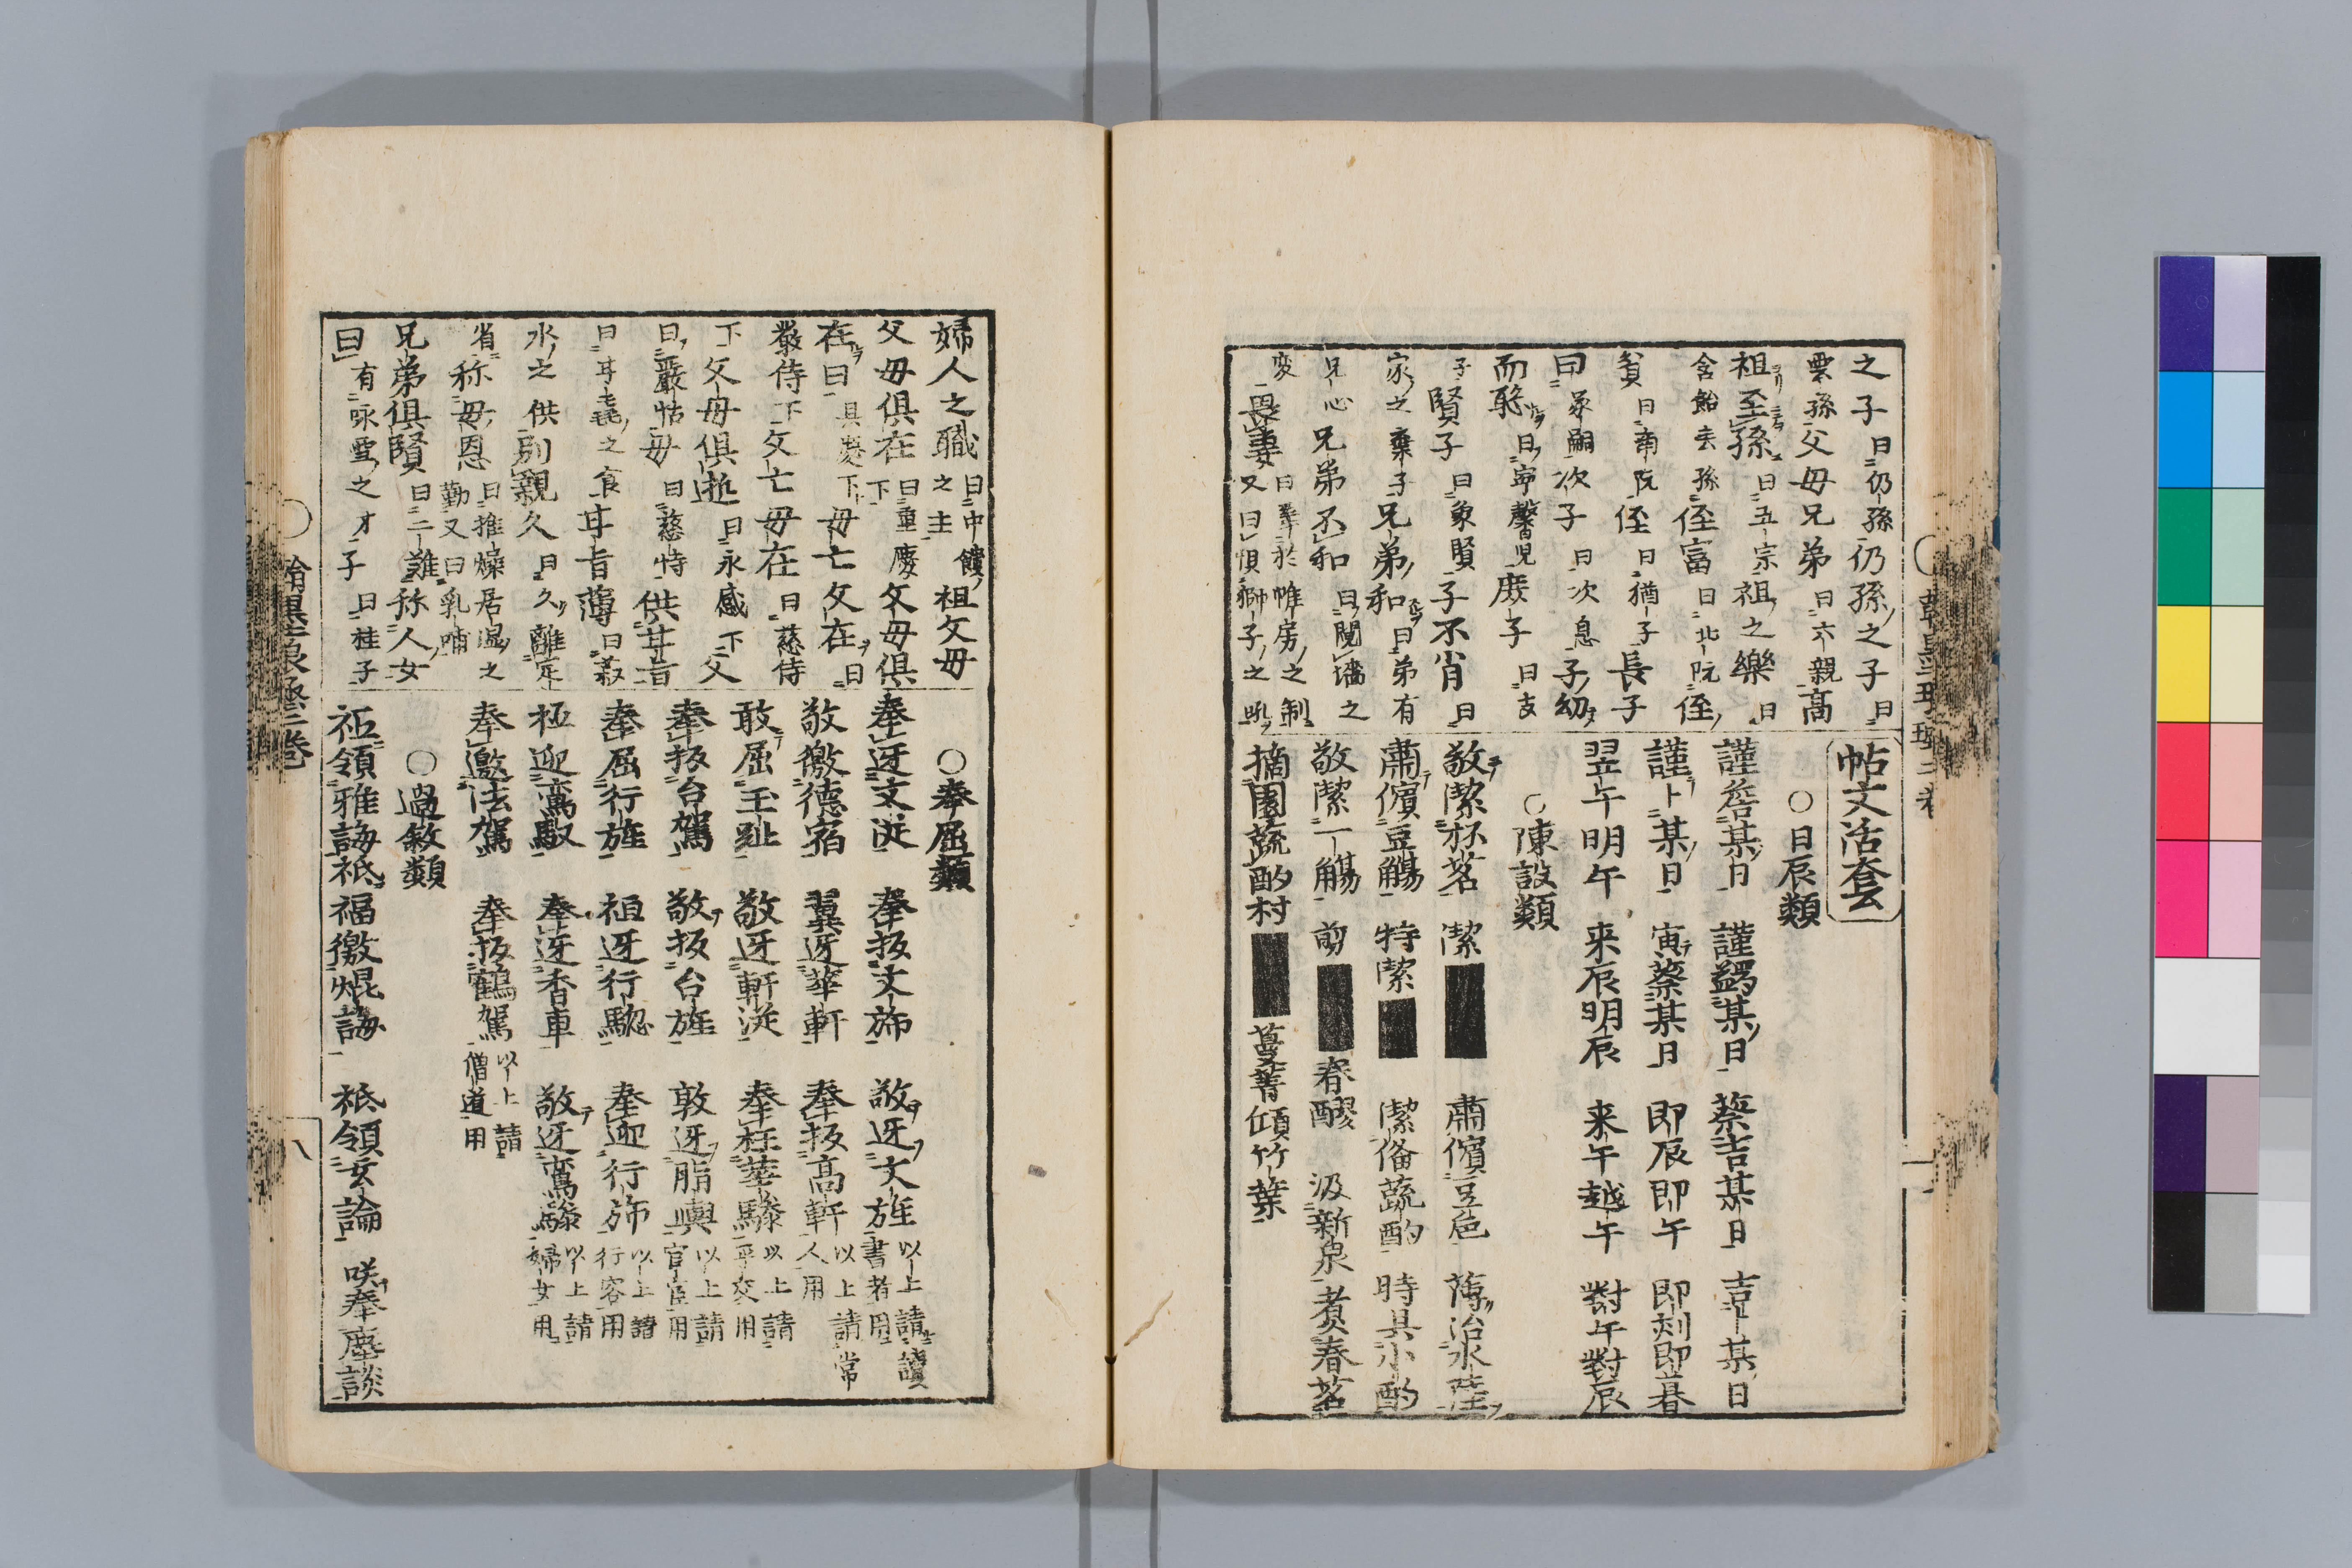 之子曰仍孫仍孫之子曰
雲孫父母兄弟曰六親高
祖至孫曰五宗祖之樂曰
含飴弄孫侄富曰北阮侄
貧曰南阮侄曰猶子長子
曰冢嗣次子曰次息子幼
而聡曰寧馨児庶子曰支
子賢子曰象賢子不肖曰
家之棄子兄弟和曰弟有
兄心兄弟不和曰鬩墻之
変畏妻曰牽於帷房之制
又曰惧獅子之吼
帖文活套
○日辰類
謹詹某日 謹蠲某日 蔡吉某日 吉某日
謹卜某日 寅蔡某日 即辰即午 即刻即暮
翌午明午 来辰明辰 来午越午 對午對辰
○陳設類
敬潔杯茗 潔 肅儐豆卮 薄治水陸
肅儐豆觴 特潔 潔偹蔬酌 時具小酌
敬潔一觴 剪 春醪 汲新泉煮春茗
摘園蔬酌村 蔓菁傾竹葉
婦人之職曰中饋之主祖父母
父母俱在曰重慶下父母俱
在曰具慶下母亡父在曰
嚴侍下父亡母在曰慈侍
下父母俱逝曰永感下父
曰嚴怙母曰慈恃供甘旨
曰甘毳之食甘旨薄曰菽
水之供別親久曰久離定
省称母恩曰推燥居湿之
勤又曰乳哺
兄弟俱賢曰二難称人女
曰有咏雪之才子曰桂子
○奉屈類
奉迓文從 奉扳文斾 敬迓文旌以上請讀書者用
敬徼德宿 翼迓華軒 奉扳高軒以上請常人用
敢屈玉趾 敬迓軒從 奉枉華驂以上請平交用
奉扳台駕 敬扳台旌 敦迓脂輿以上請官宦用
奉屈行旌 祖迓行驄 奉迎行斾以上請行客用
枉迎鸞馭 奉迓香車 敬迓鸞驂以上請婦女用
奉邀法駕 奉扳鶴駕以上請僧道用
○過敘類
祗領雅誨祗福徼焜誨 祗領玄論 咲奉塵談
翰墨琅璖二巻
八